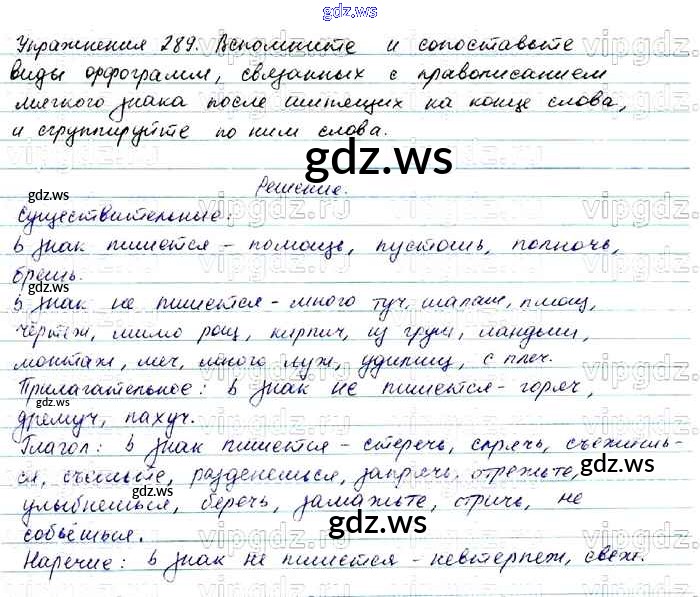 gdz.ws
Упражнения 289. Вспомните и сопоставьте
виды орфограмм, связанных с правописанием
мягкого знака после шипящих на конце слова,
и сгруппируйте по ним слова.
gdz.ws
Решение.
gdz.ws
Существительные:
ь знак пишется - помощь, пустошь, полночь,
брешь.
ь знак не пишется - много туч, шалаш, плющ,
чертёж, мимо рощ, кирпич, из груш, ландыш,
монтаж, меч, много луж, удилищ, с плеч.
Прилагательное: ь знак не пишется - горяч,
gdz.ws
дремуч, пахуч.
Глагол: ь знак пишется - стеречь, спрячь, съежишь-
ся, съешьте, разденешься, запрячь, отрежьте,
gdz.ws
улыбнешься, беречь, замажьте, стричь, не
gdz.ws
собьёшься.
Наречие: ь знак не пишется - невтерпеж,
gdz.ws
vipgdz.ru